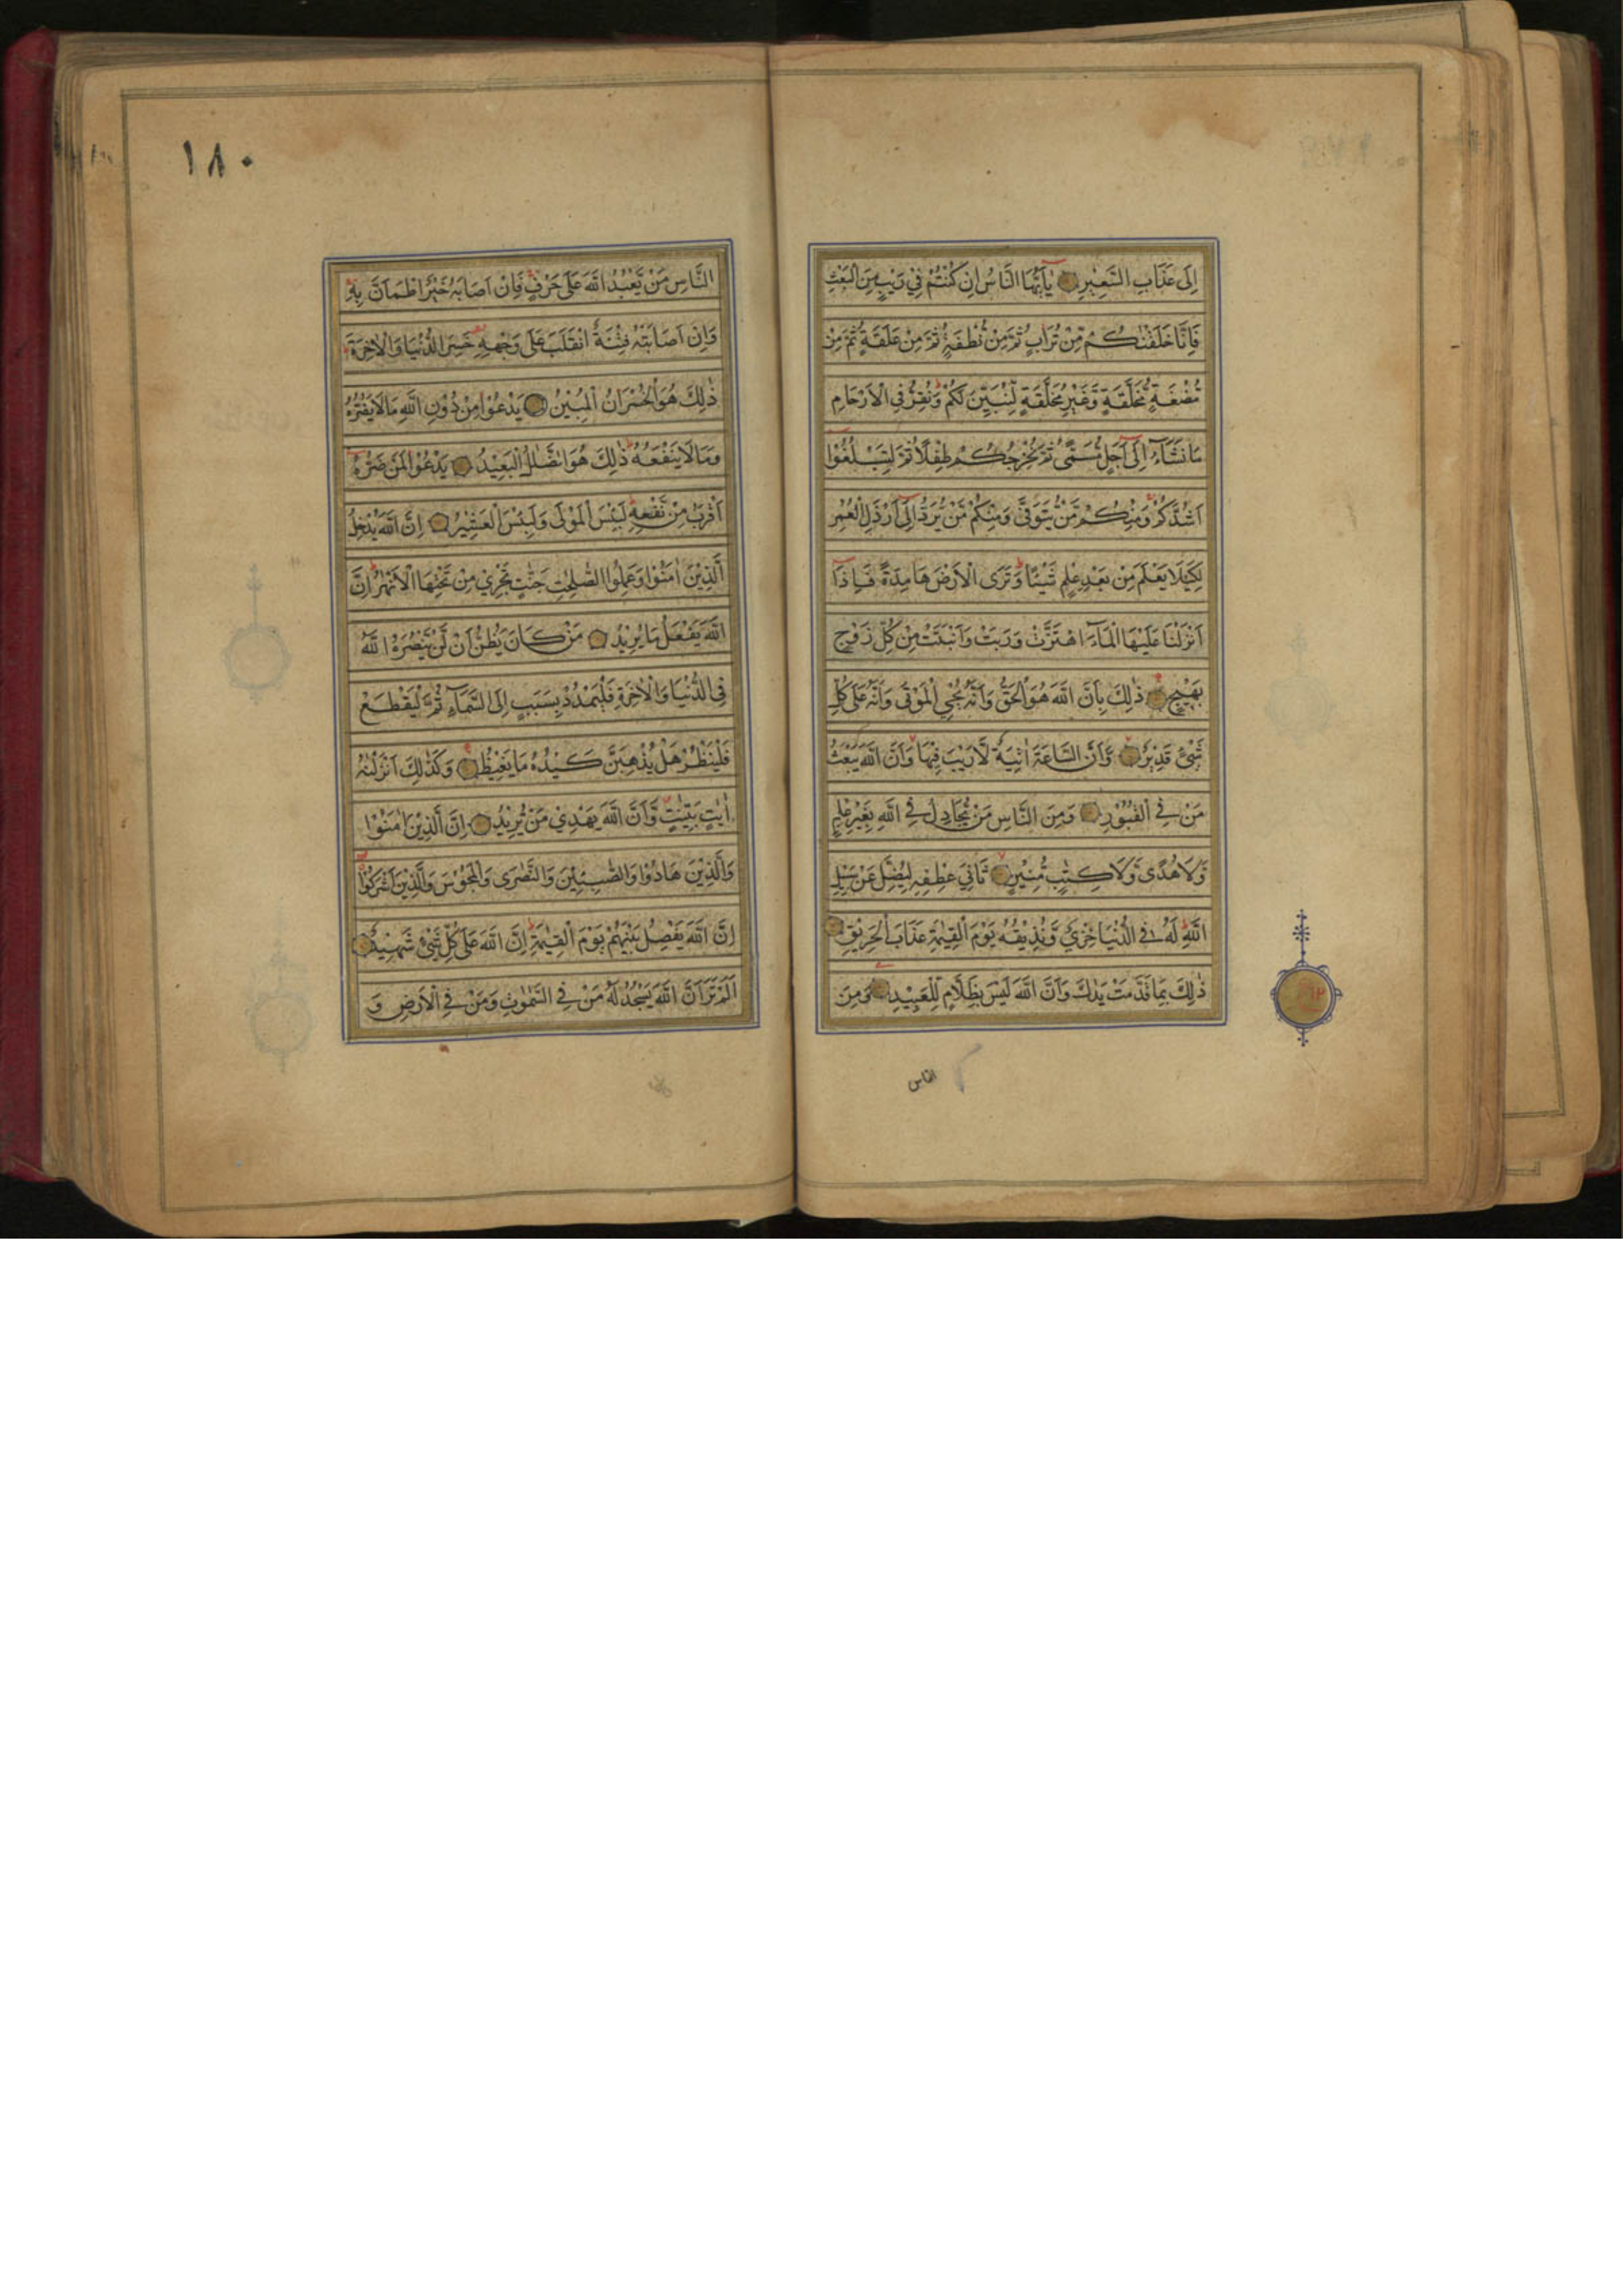 اِلٰى عَذَابِ السَّعِيْرِ يٰٓاَيُّهَا النَّاسُ اِنْ كُنْتُمْ فِيْ رَيْبٍ مِنَ الْبَعْثِ
فَاِنَّا خَلَقْنٰكُمْ مِّنْ تُرَابٍ ثُمَّ مِنْ نُّطْفَةٍ ثُمَّ مِنْ عَلَقَةٍ ثُمَّ مِنْ
مُّضْغَةٍ مُّخَلَّقَةٍ وَّغَيْرِ مُخَلَّقَةٍ لِّنُبَيِّنَ لَكُمْ وَنُقِرُّ فِي الْاَرْحَامِ
مَا نَشَآءُ اِلٰٓى اَجَلٍ مُّسَمًّى ثُمَّ نُخْرِجُكُمْ طِفْلًا ثُمَّ لِتَبْلُغُوْٓا
اَشُدَّكُمْ وَمِنْكُمْ مَّنْ يُّتَوَفّٰى وَمِنْكُمْ مَّنْ يُّرَدُّ اِلٰٓى اَرْذَلِ الْعُمُرِ
لِكَيْلَا يَعْلَمَ مِنْ بَعْدِ عِلْمٍ شَيْئًا وَتَرَى الْاَرْضَ هَامِدَةً فَاِذَآ
اَنْزَلْنَا عَلَيْهَا الْمَآءَ اهْتَزَّتْ وَرَبَتْ وَاَنْبَتَتْ مِنْ كُلِّ زَوْجٍ
بَهِيْجٍ ذٰلِكَ بِاَنَّ اللّٰهَ هُوَ الْحَقُّ وَاَنَّهٗ يُحْيِ الْمَوْتٰى وَاَنَّهٗ عَلٰى كُلِّ
شَيْءٍ قَدِيْرٌ وَّاَنَّ السَّاعَةَ اٰتِيَةٌ لَّا رَيْبَ فِيْهَا وَاَنَّ اللّٰهَ يَبْعَثُ
مَنْ فِي الْقُبُوْرِ وَمِنَ النَّاسِ مَنْ يُّجَادِلُ فِي اللّٰهِ بِغَيْرِ عِلْمٍ
وَّلَا هُدًى وَّلَا كِتٰبٍ مُّنِيْرٍ ثَانِيَ عِطْفِهٖ لِيُضِلَّ عَنْ سَبِيْلِ
اللّٰهِ لَهٗ فِي الدُّنْيَا خِزْيٌ وَّنُذِيْقُهٗ يَوْمَ الْقِيٰمَةِ عَذَابَ الْحَرِيْقِ
ذٰلِكَ بِمَا قَدَّمَتْ يَدٰكَ وَاَنَّ اللّٰهَ لَيْسَ بِظَلَّامٍ لِّلْعَبِيْدِ وَمِنَ
الناس
١٨٠
النَّاسِ مَنْ يَّعْبُدُ اللّٰهَ عَلٰى حَرْفٍ فَاِنْ اَصَابَهٗ خَيْرٌ اطْمَاَنَّ بِهٖ
وَاِنْ اَصَابَتْهُ فِتْنَةٌ انْقَلَبَ عَلٰى وَجْهِهٖ خَسِرَ الدُّنْيَا وَالْاٰخِرَةَ
ذٰلِكَ هُوَ الْخُسْرَانُ الْمُبِيْنُ يَدْعُوْا مِنْ دُوْنِ اللّٰهِ مَا لَا يَضُرُّهٗ
وَمَا لَا يَنْفَعُهٗ ذٰلِكَ هُوَ الضَّلٰلُ الْبَعِيْدُ يَدْعُوْا لَمَنْ ضَرُّهٗٓ
اَقْرَبُ مِنْ نَّفْعِهٖ لَبِئْسَ الْمَوْلٰى وَلَبِئْسَ الْعَشِيْرُ اِنَّ اللّٰهَ يُدْخِلُ
الَّذِيْنَ اٰمَنُوْا وَعَمِلُوا الصّٰلِحٰتِ جَنّٰتٍ تَجْرِيْ مِنْ تَحْتِهَا الْاَنْهٰرُ اِنَّ
اللّٰهَ يَفْعَلُ مَا يُرِيْدُ مَنْ كَانَ يَظُنُّ اَنْ لَّنْ يَّنْصُرَهُ اللّٰهُ
فِي الدُّنْيَا وَالْاٰخِرَةِ فَلْيَمْدُدْ بِسَبَبٍ اِلَى السَّمَآءِ ثُمَّ لْيَقْطَعْ
فَلْيَنْظُرْ هَلْ يُذْهِبَنَّ كَيْدُهٗ مَا يَغِيْظُ وَكَذٰلِكَ اَنْزَلْنٰهُ
اٰيٰتٍ بَيِّنٰتٍ وَّاَنَّ اللّٰهَ يَهْدِيْ مَنْ يُّرِيْدُ اِنَّ الَّذِيْنَ اٰمَنُوْا
وَالَّذِيْنَ هَادُوْا وَالصّٰبِـِٕيْنَ وَالنَّصٰرٰى وَالْمَجُوْسَ وَالَّذِيْنَ اَشْرَكُوْٓا
اِنَّ اللّٰهَ يَفْصِلُ بَيْنَهُمْ يَوْمَ الْقِيٰمَةِ اِنَّ اللّٰهَ عَلٰى كُلِّ شَيْءٍ شَهِيْدٌ
اَلَمْ تَرَ اَنَّ اللّٰهَ يَسْجُدُ لَهٗ مَنْ فِي السَّمٰوٰتِ وَمَنْ فِي الْاَرْضِ وَ